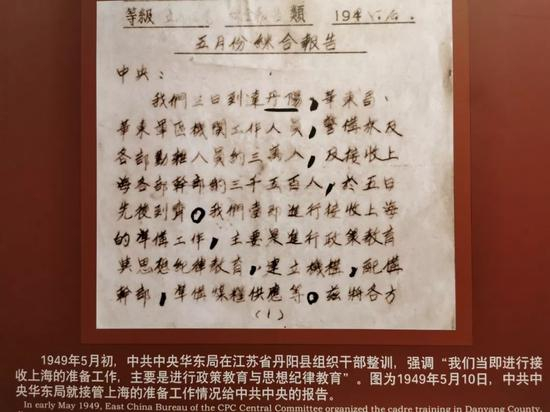 等級 類 194
五月份綜合報告
中央：
我們三日到達丹陽，華東局、
華東軍區機關工作人員，警備旅及
各部勤雜人員約三萬人，及接收上
海各部幹部約三千五百人，於五日
先後到齊。我們當即進行接收上海
的準備工作，主要是進行政策教育
與思想紀律教育，建立機構，配備
幹部，準備煤糧供應等。茲將各方
(1)
1949年5月初，中共中央华东局在江苏省丹阳县组织干部整训，强调“我们当即进行接
收上海的准备工作，主要是进行政策教育与思想纪律教育”。图为1949年5月10日，中共中
央华东局就接管上海的准备工作情况给中共中央的报告。
In early May 1949, East China Bureau of the CPC Central Committee organized the cadre training in Danyang County,